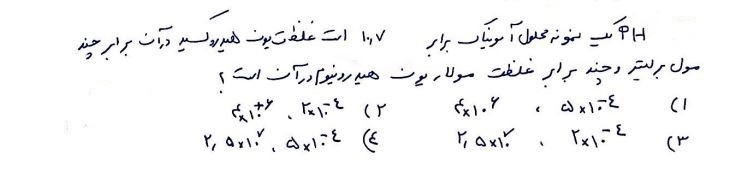 PH یک نمونه محلول آمونیاک برابر ۱۰٫۷ است غلظت یون هیدروکسید در آن برابر چند
مول بر لیتر و چند برابر غلظت مولار یون هیدرونیوم در آن است ؟
۱) ۵×۱۰⁻⁴ ، ۴×۱۰⁶ ۲) ۲×۱۰⁻⁴ ، ۴×۱۰⁺⁶
۳) ۲×۱۰⁻⁴ ، ۲٫۵×۱۰⁷ ۴) ۵×۱۰⁻⁴ ، ۲٫۵×۱۰⁷